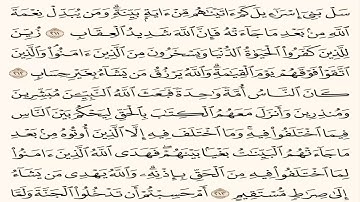 سَلْ بَنِىٓ إِسْرَٰٓءِيلَ كَمْ ءَاتَيْنَٰهُم مِّنْ ءَايَةٍۭ بَيِّنَةٍ ۗ وَمَن يُبَدِّلْ نِعْمَةَ
ٱللَّهِ مِنۢ بَعْدِ مَا جَآءَتْهُ فَإِنَّ ٱللَّهَ شَدِيدُ ٱلْعِقَابِ ٢١١ زُيِّنَ
لِلَّذِينَ كَفَرُوا۟ ٱلْحَيَوٰةُ ٱلدُّنْيَا وَيَسْخَرُونَ مِنَ ٱلَّذِينَ ءَامَنُوا۟ ۘ وَٱلَّذِينَ
ٱتَّقَوْا۟ فَوْقَهُمْ يَوْمَ ٱلْقِيَٰمَةِ ۗ وَٱللَّهُ يَرْزُقُ مَن يَشَآءُ بِغَيْرِ حِسَابٍ ٢١٢
كَانَ ٱلنَّاسُ أُمَّةً وَٰحِدَةً فَبَعَثَ ٱللَّهُ ٱلنَّبِيِّۦنَ مُبَشِّرِينَ
وَمُنذِرِينَ وَأَنزَلَ مَعَهُمُ ٱلْكِتَٰبَ بِٱلْحَقِّ لِيَحْكُمَ بَيْنَ ٱلنَّاسِ
فِيمَا ٱخْتَلَفُوا۟ فِيهِ ۚ وَمَا ٱخْتَلَفَ فِيهِ إِلَّا ٱلَّذِينَ أُوتُوهُ مِنۢ بَعْدِ
مَا جَآءَتْهُمُ ٱلْبَيِّنَٰتُ بَغْيًۢا بَيْنَهُمْ ۖ فَهَدَى ٱللَّهُ ٱلَّذِينَ ءَامَنُوا۟
لِمَا ٱخْتَلَفُوا۟ فِيهِ مِنَ ٱلْحَقِّ بِإِذْنِهِۦ ۗ وَٱللَّهُ يَهْدِى مَن يَشَآءُ
إِلَىٰ صِرَٰطٍ مُّسْتَقِيمٍ ٢١٣ أَمْ حَسِبْتُمْ أَن تَدْخُلُوا۟ ٱلْجَنَّةَ وَلَمَّا